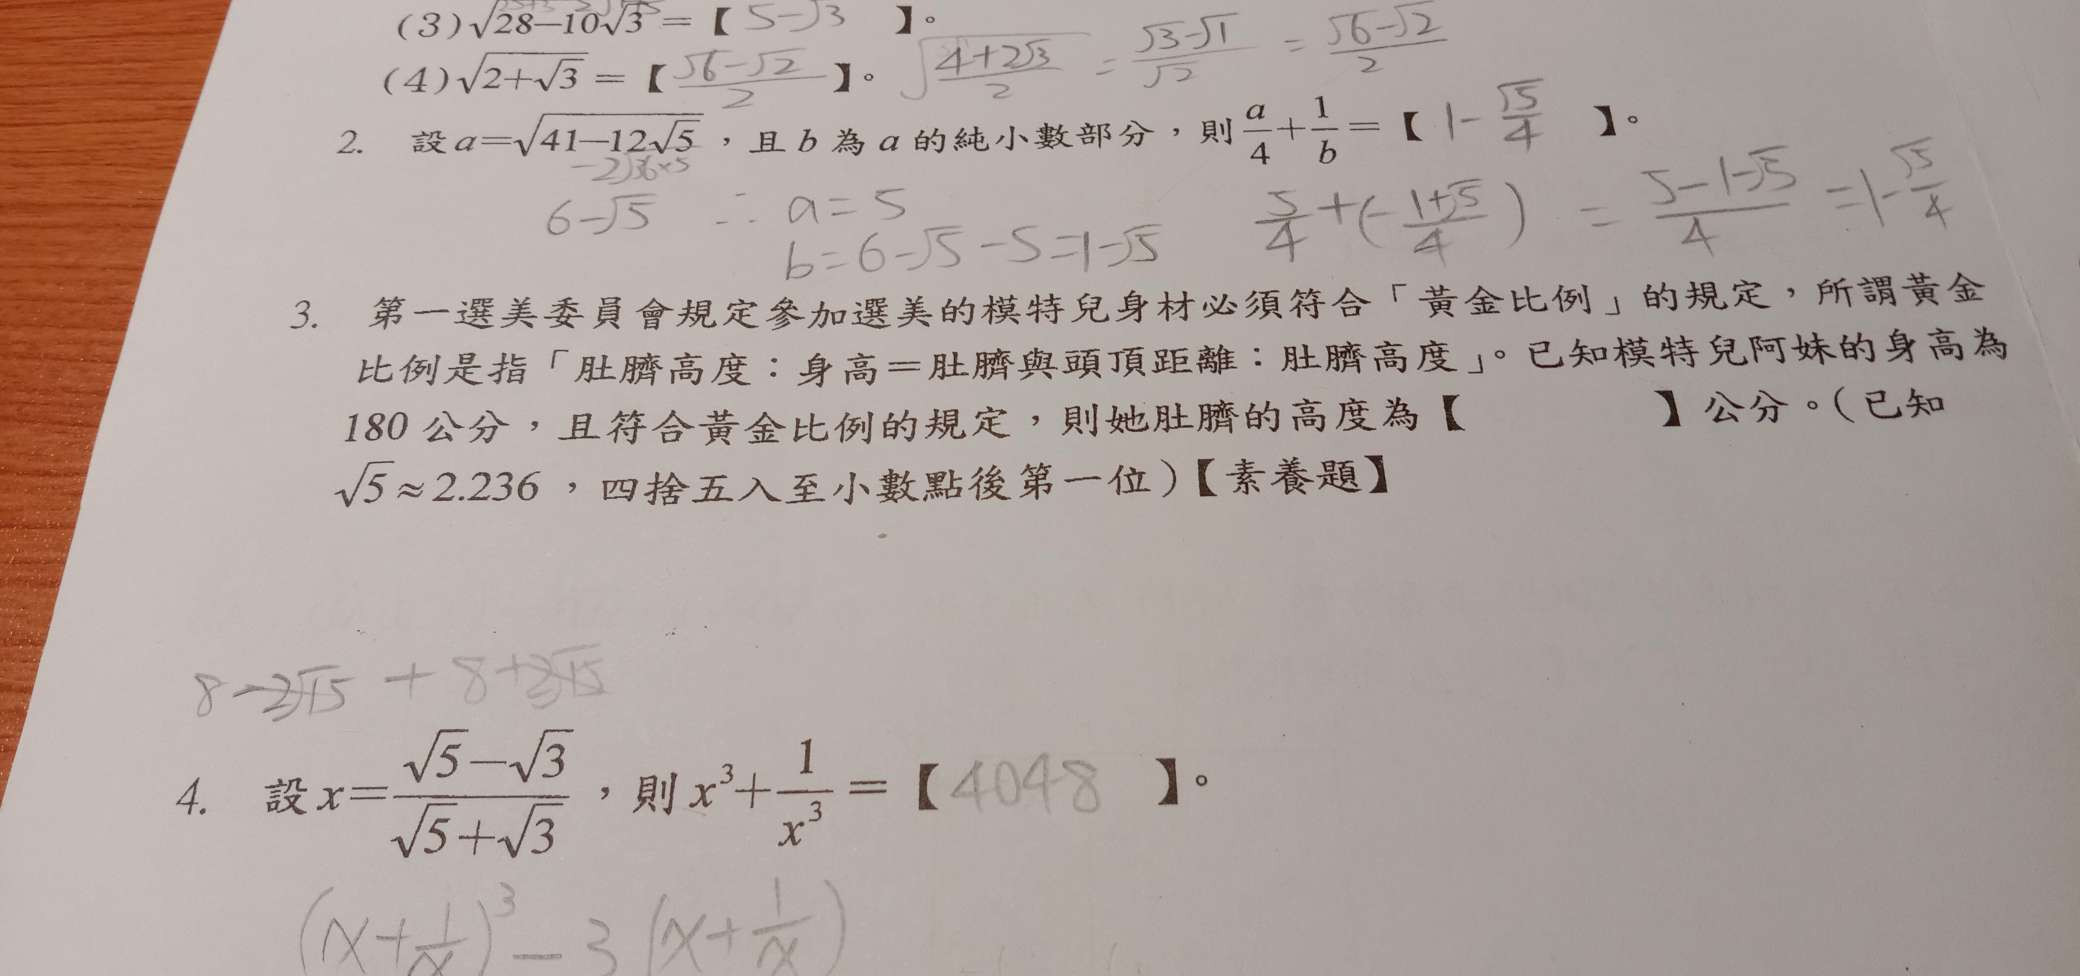 (3)√28−10√3=【 5-√3 】。
(4)√2+√3=【 √6-√2/2 】。 √4+2√3/2 = √3-√1/√2 = √6-√2/2
2. 設a=√41−12√5，且b為a的純小數部分，則a/4+1/b=【 1-√5/4 】。
-2√36×5
6-√5 ∴ a=5 5/4+(-1+√5/4) = 5-1-√5/4 =1-√5/4
b=6-√5-5=1-√5
3. 第一選美委員會規定參加選美的模特兒身材必須符合「黃金比例」的規定，所謂黃金
比例是指「肚臍高度：身高＝肚臍與頭頂距離：肚臍高度」。已知模特兒阿妹的身高為
180公分，且符合黃金比例的規定，則她肚臍的高度為【 】公分。(已知
√5≈2.236，四捨五入至小數點後第一位)【素養題】
8-2√15 + 8+2√15
4. 設x=√5−√3/√5+√3，則x³+1/x³=【 4048 】。
(x+1/x)³-3(x+1/x)